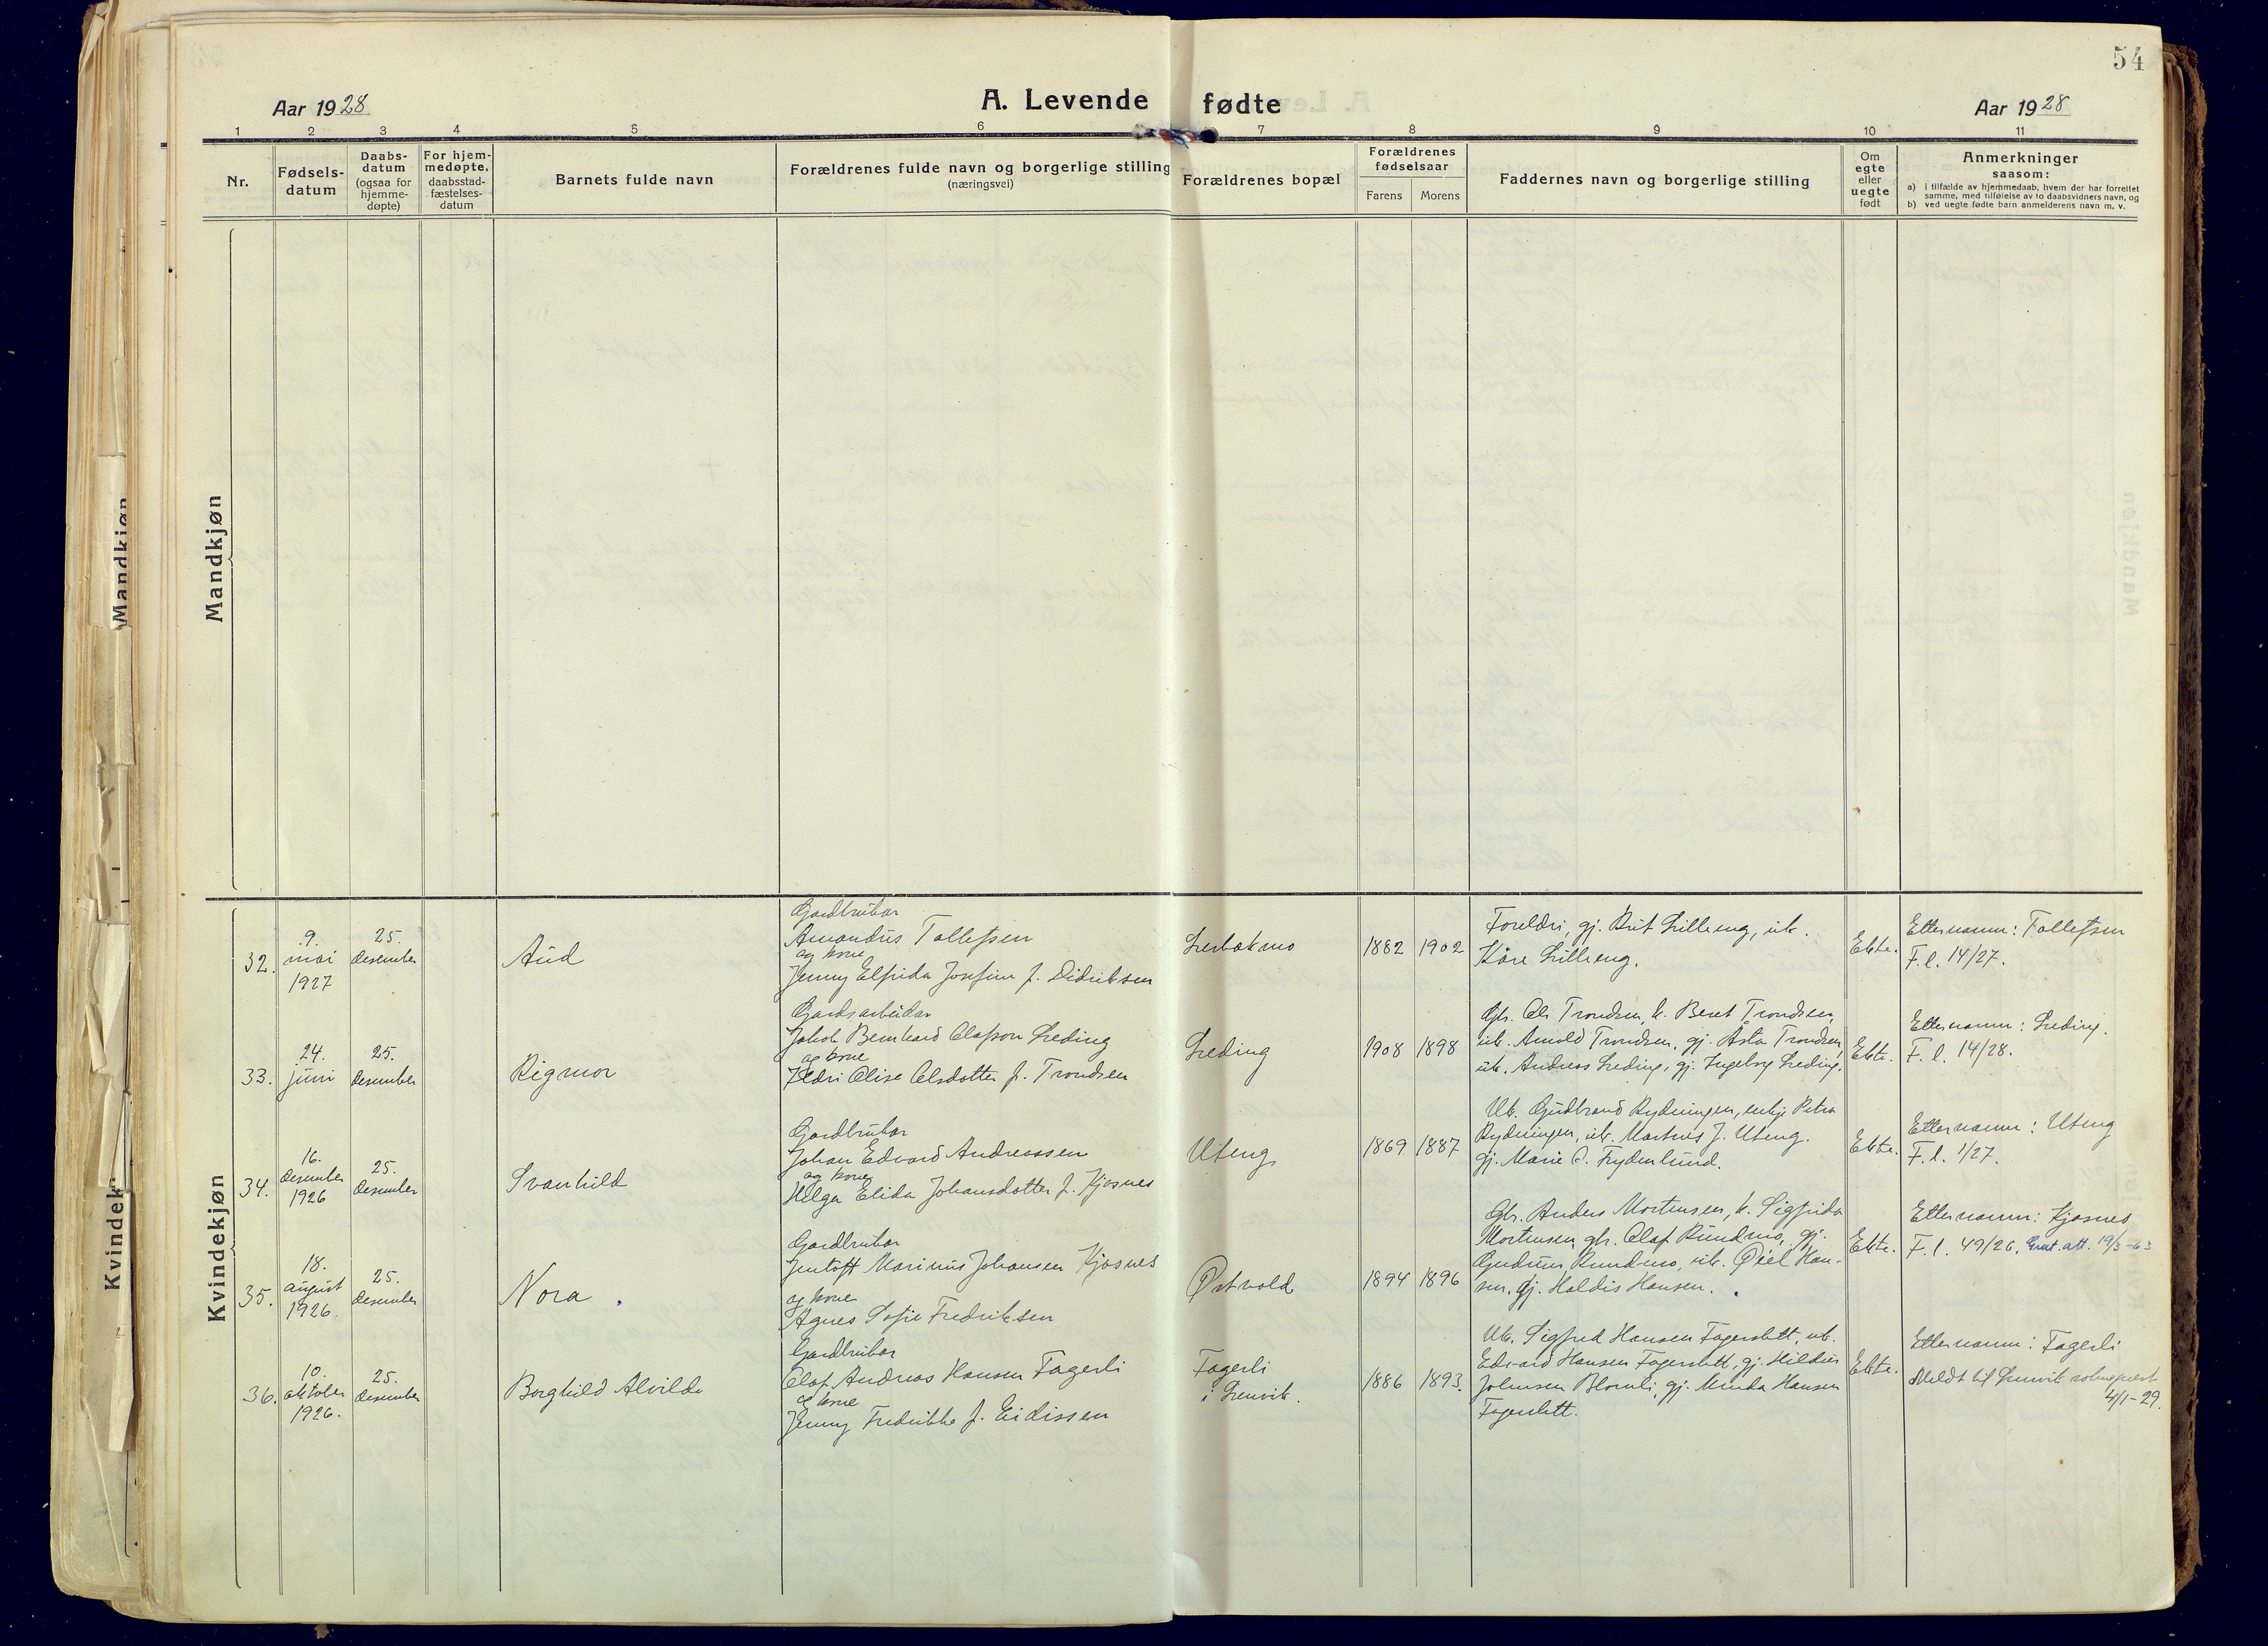 54
Aar 1928
A. Levende fødte
Aar 1928
1 2 3 4 5 6 7 8 9 10 11
Nr.
Fødsels-
datum
Daabs-
datum
(ogsaa for
hjemme-
døpte)
For hjem-
medøpte,
daabsstad-
fæstelses-
datum
Barnets fulde navn
Forældrenes fulde navn og borgerlige stilling
(næringsvei)
Forældrenes bopæl
Forældrenes
fødselsaar
Farens Morens
Faddernes navn og borgerlige stilling
Om
egte
eller
uegte
født
Anmerkninger
saasom:
a) i tilfælde av hjemmedaab, hvem der har forrettet
samme, med tilføielse av to daabsvidners navn, og
b) ved uegte fødte barn anmelderens navn m. v.
Mandkjøn
Mandkjøn
Kvindekjøn
Kvindek
32.
9.
mai
1927
25.
desember
Aud
Gardbrukar
Amandus Tollefsen
og kone
Jenny Elfrida Josefine f. Didriksen
1882 1902
Foreldri, gj. Rut Lilleeng, uk.
Kåre Lilleeng.
Ekte.
Etternamn: Tollefsen
F. l. 14/27.
33.
24.
juni
25.
desember
Rigmor
Gardsarbeidar
Jakob Bernhard Olafson Greding
og kone
Olise Olsdotter f. Trondsen
1908 1898
Gbr. Ole Trondsen, k. Beret Trondsen,
uk. Arnold Trondsen, gj. Åsta Trondsen,
uk. Andreas, gj. Ingeborg
Ekte.
Etternamn:
F. l. 14/28.
34.
16.
desember
1926
25.
desember
Svanhild
Gardbrukar
Johan Edvard Andreassen
og kone
Helga Elida Johansdotter f. Kjosnes
Uteng
1869 1887
Uk. Gudbrand Rydningen, enkje Petra
Rydningen, uk. Martnus J. Uteng.
gj. Marie O. Frydenlund.
Ekte.
Etternamn: Uteng
F. l. 1/27.
35.
18.
august
1926.
25.
desember
Nora.
Gardbrukar
Jentoft Marinus Johansen Kjosnes
og kone
Agnes Sofie Fredriksen
Østvold
1894 1896
Gbr. Anders Mortensen, k. Sigfrida
Mortensen, gbr. Olaf Rundmo, gj.
Gudrun Rundmo, uk. Han-
sen, gj. Haldis Hansen.
Ekte.
Etternamn: Kjosnes
F. l. 49/26. att. 19/3-63
36.
10.
oktober
1926.
25.
desember
Borghild Alvilde
Gardbrukar
Olaf Andreas Hansen Fagerli
og kone
Jenny Fredrikke f. Eidissen
Fagerli
i Lenvik.
1886 1893.
Uk. Sigfred Hansen Fagerslett, uk.
Edvard Hansen Fagerslett, gj. Hildur
Johnsen Blomli, gj. Minda Hansen
Fagerslett.
Ekte.
Etternamn: Fagerli
Meldt til Lenvik
4/1-29.